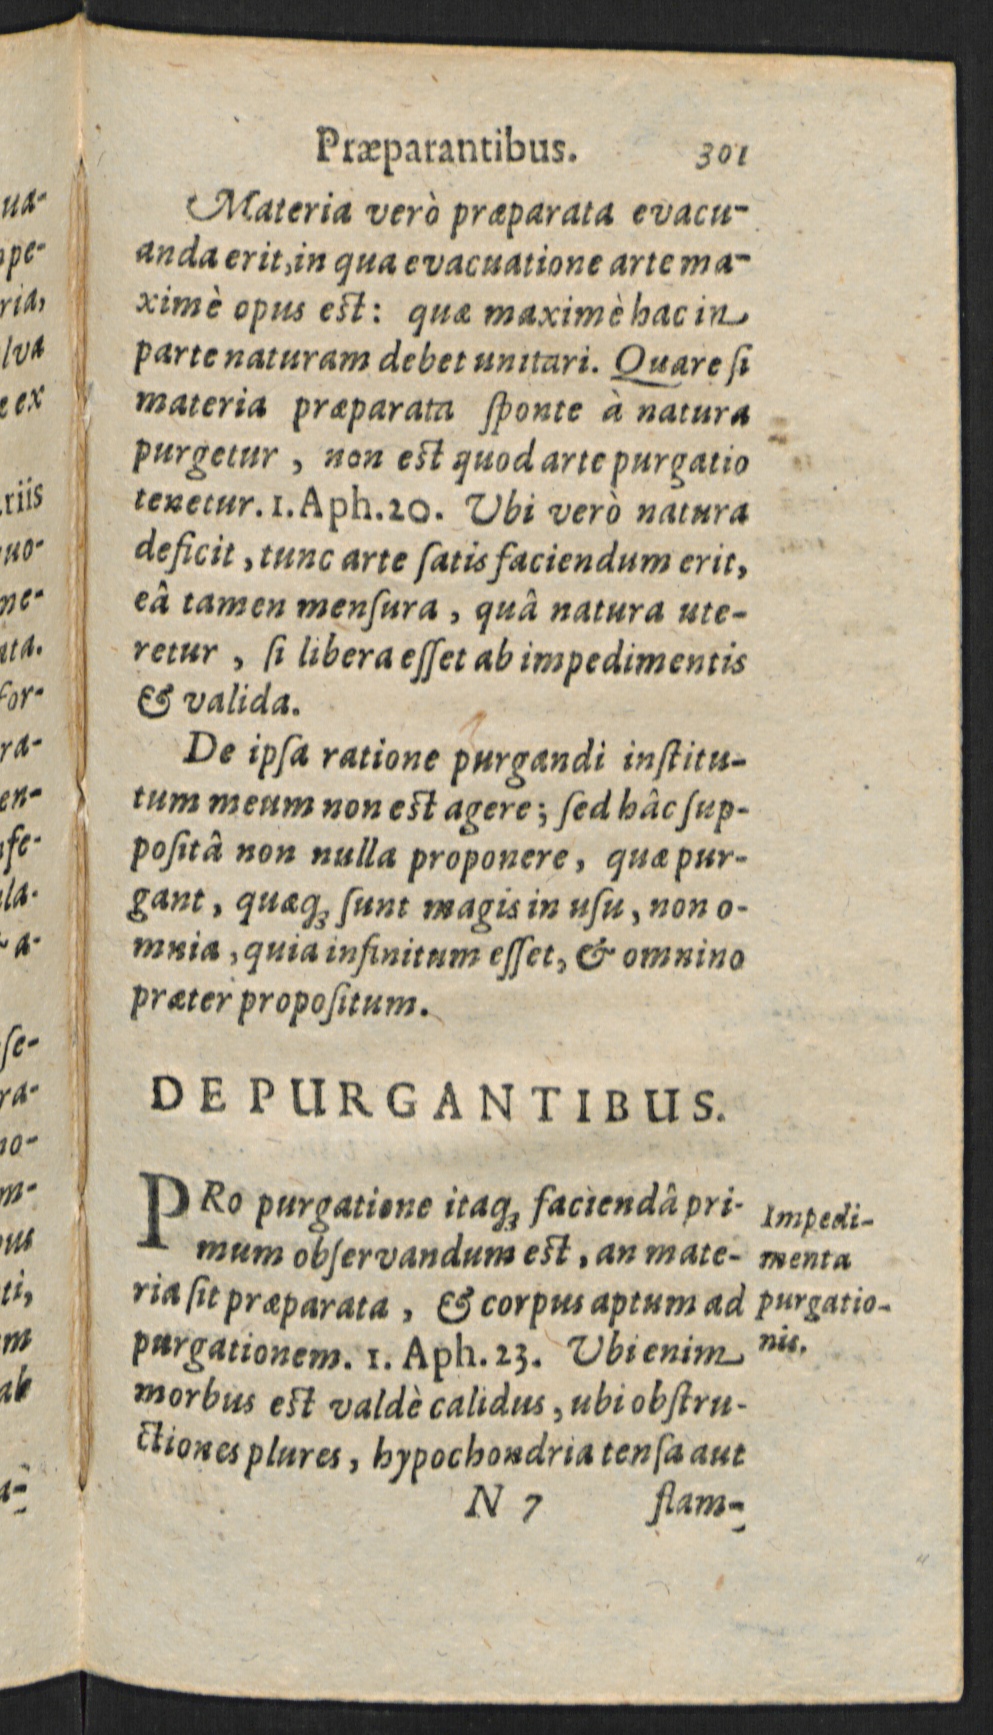 Præparantibus. 301
Materia verò præparata evacu-
anda erit, in qua evacuatione arte ma-
ximè opus est: quæ maximè hac in
parte naturam debet unitari. Quare ſi
materia præparata ſponte à natura
purgetur, non est quod arte purgatio
tenetur. 1. Aph. 20. Ubi verò natura
deficit, tunc arte ſatis faciendum erit,
eâ tamen menſura, quâ natura ute-
retur, ſi libera eſſet ab impedimentis
& valida.
De ipſa ratione purgandi inſtitu-
tum meum non est agere; ſed hâc ſup-
poſitâ non nulla proponere, quæ pur-
gant, quæqꝫ ſunt magis in uſu, non o-
mnia, quia infinitum eſſet, & omnino
præter propoſitum.
DE PURGANTIBUS.
PRo purgatione itaqꝫ faciendâ pri-
mum obſervandum est, an mate-
ria ſit præparata, & corpus aptum ad
purgationem. 1. Aph. 23. Ubi enim
morbus est valdè calidus, ubi obſtru-
ctiones plures, hypochondria tenſa aut
N 7 flam-
Impedi-
menta
purgatio-
nis.
ua-
pe-
ria,
lva
e ex
riis
uo-
me-
ata.
for-
ra-
en-
ſe-
la-
a-
ſe-
ra-
no-
m-
ti,
m
ab
a-